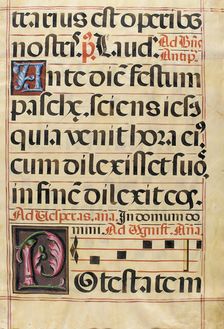 trarius est operibus
nostris. p̄. Laud. Ad Bñe
Antip.
Ante diē festum
paschę, sciens iesꝰ
quia venit hora eiꝰ
cum dilexisset suos
in finē dilexit eos.
Ad Vesperas. aña. In domum do
mini. Ad Magnift. Aña.
Potestatem